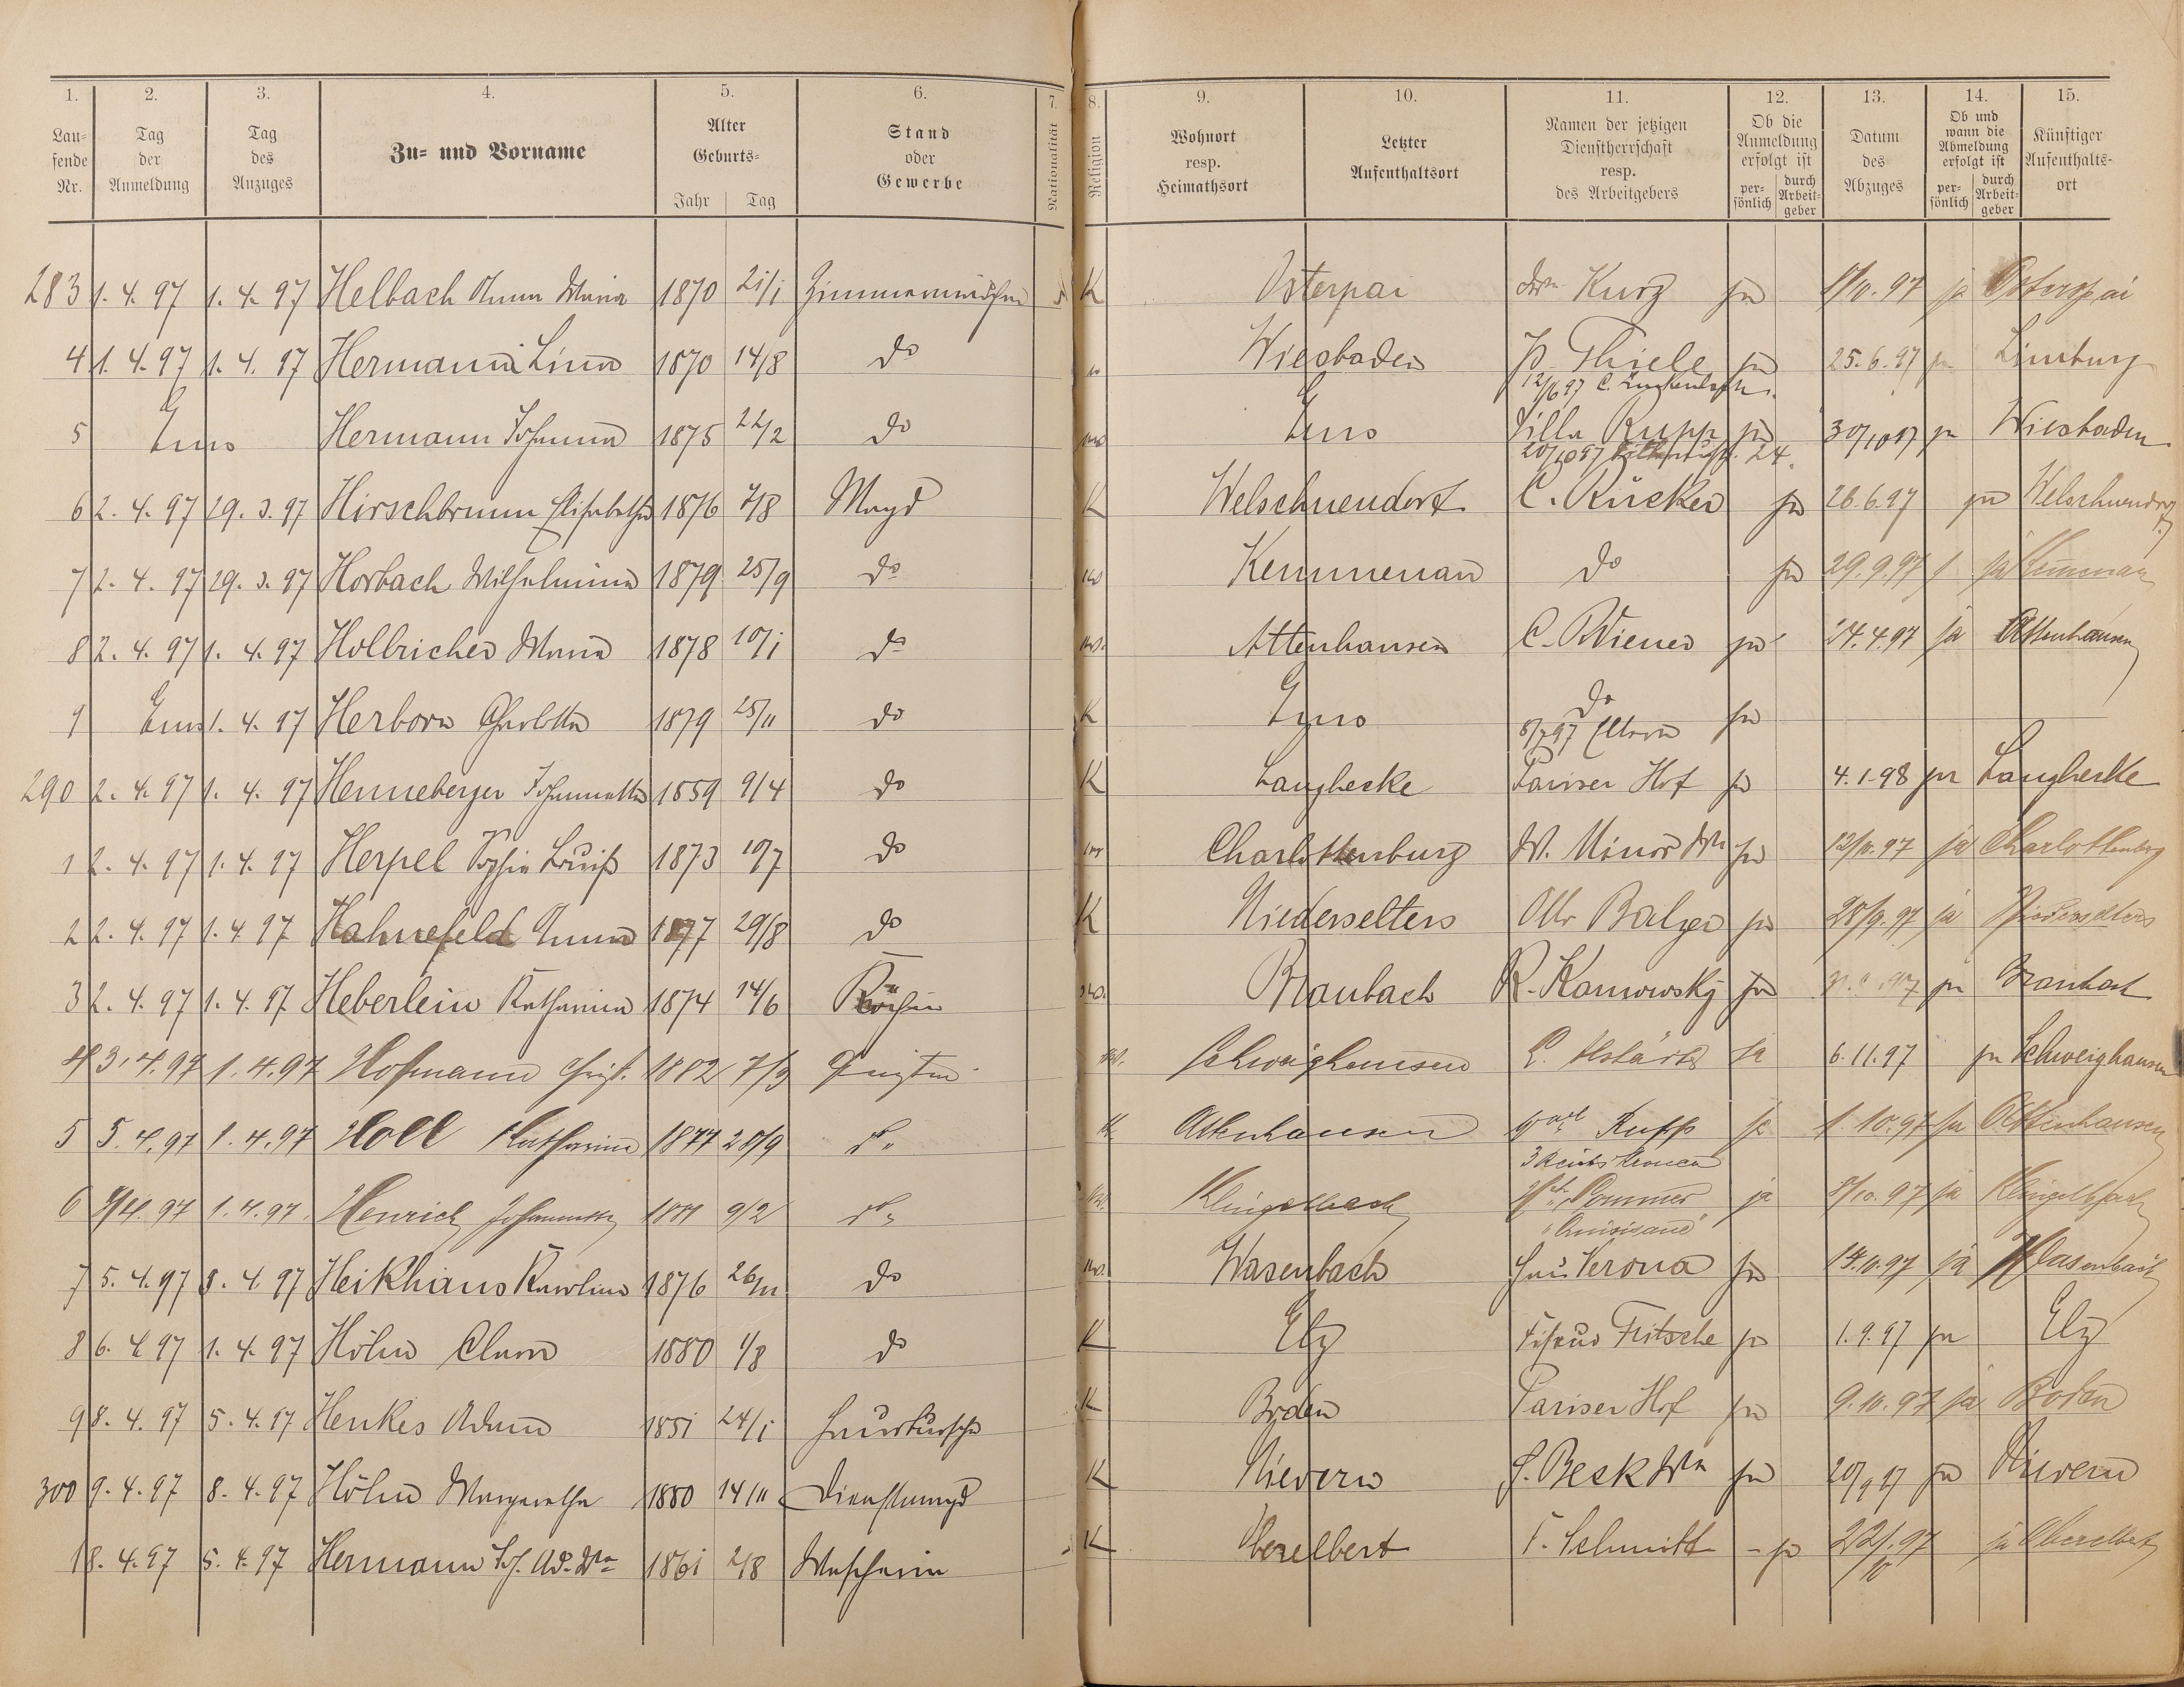 1. 2. 3. 4. 5. 6. 7. 8. 9. 10. 11. 12. 13. 14. 15.
Laufende Nr.
Tag der Anmeldung
Tag des Anzuges
Zu- und Vorname
Alter
Geburts-
Jahr Tag
Stand oder Gewerbe
Nationalität
Religion
Wohnort resp. Heimathsort
Letzter Aufenthaltsort
Namen der jetzigen Dienstherrschaft resp. des Arbeitgebers
Ob die Anmeldung erfolgt ist
persönlich durch Arbeitgeber
Datum des Abzuges
Ob und wann die Abmeldung erfolgt ist
persönlich durch Arbeitgeber
Künftiger Aufenthaltsort
283 1. 4. 97 1. 4. 97 Helbach Anna Maria 1870 21/1 Zimmermädchen K Osterpai Kurz ja 1/10. 97 ja Osterspai
4 1. 4. 97 1. 4. 97 Hermann Lina 1870 14/8 do Wiesbaden Thiele ja 25. 6. 97 ja Limburg
12/6 97
5 Ems Hermann Johanna 1875 22/2 do Ems Villa Rupp ja 30/10 97 ja Wiesbaden
20/10 97 24.
6 2. 4. 97 29. 3. 97 Hirschbrunn Elisabetha 1876 7/8 Magd K Welschneudorf C. Rücker ja 26. 6. 97 ja Welschneudorf
7 2. 4. 97 29. 3. 97 Horbach Wilhelmina 1879 25/9 do Kemmenau do ja 29. 9. 97 ja Kemmenau
8 2. 4. 97 1. 4. 97 Holbricher Maria 1878 10/1 do Attenhausen C. Wiener ja 24. 4. 97 ja Attenhausen
9 Ems 1. 4. 97 Herborn Charlotta 1879 25/11 do K Ems do ja
8/7 97 Eltern
290 2. 4. 97 1. 4. 97 Henneberger Johannetta 1859 9/4 do K Langhecke Pariser Hof ja 4. 1. 98 ja Langhecke
1 2. 4. 97 1. 4. 97 Herpel Sophie Louise 1873 10/7 do Charlottenburg W. Minor Wwe ja 12/10. 97 ja Charlottenberg
2 2. 4. 97 1. 4. 97 Hahnefeld Anna 1877 29/8 do K Niederselters Otto Balzer ja 28/9. 97 ja Niederselters
3 2. 4. 97 1. 4. 97 Heberlein Katharina 1874 14/6 Köchin Braubach R. Kanowsky ja ja Braubach
4 3. 4. 97 1. 4. 97 Hofmann Christ. 1882 7/3 Schweighausen ja 6. 11. 97 ja Schweighausen
5 5. 4. 97 1. 4. 97 Holl Katharina 1877 20/9 do K Attenhausen Rupp ja 1. 10. 97 ja Attenhausen
6 1. 4. 97 Henrich Johannette 9/2 do Klingelbach Sommer ja 8/10. 97 ja Klingelbach
7 5. 4. 97 Heikhaus Karolina 1876 26/11 do Wasenbach Haus Verona ja 14. 10. 97 ja Wasenbach
8 6. 4. 97 1. 4. 97 Höhn Clara 1880 1/8 do K Elz Fritsche ja 1. 9. 97 ja Elz
9 8. 4. 97 5. 4. 97 Henkes Adam 1851 24/1 Hausbursche K Boden Pariser Hof ja 9. 10. 97 ja Boden
300 9. 4. 97 8. 4. 97 Höhn Margaretha 1880 14/11 Dienstmagd K Nievern Beck Wwe ja 20/9 97 ja Nievern
1 8. 4. 97 5. 4. 97 Hermann Jos. Ad. Wwe 1861 2/8 Wascherin K Oberelbert F. Schmitt ja 22/10. 97 ja Oberelbert